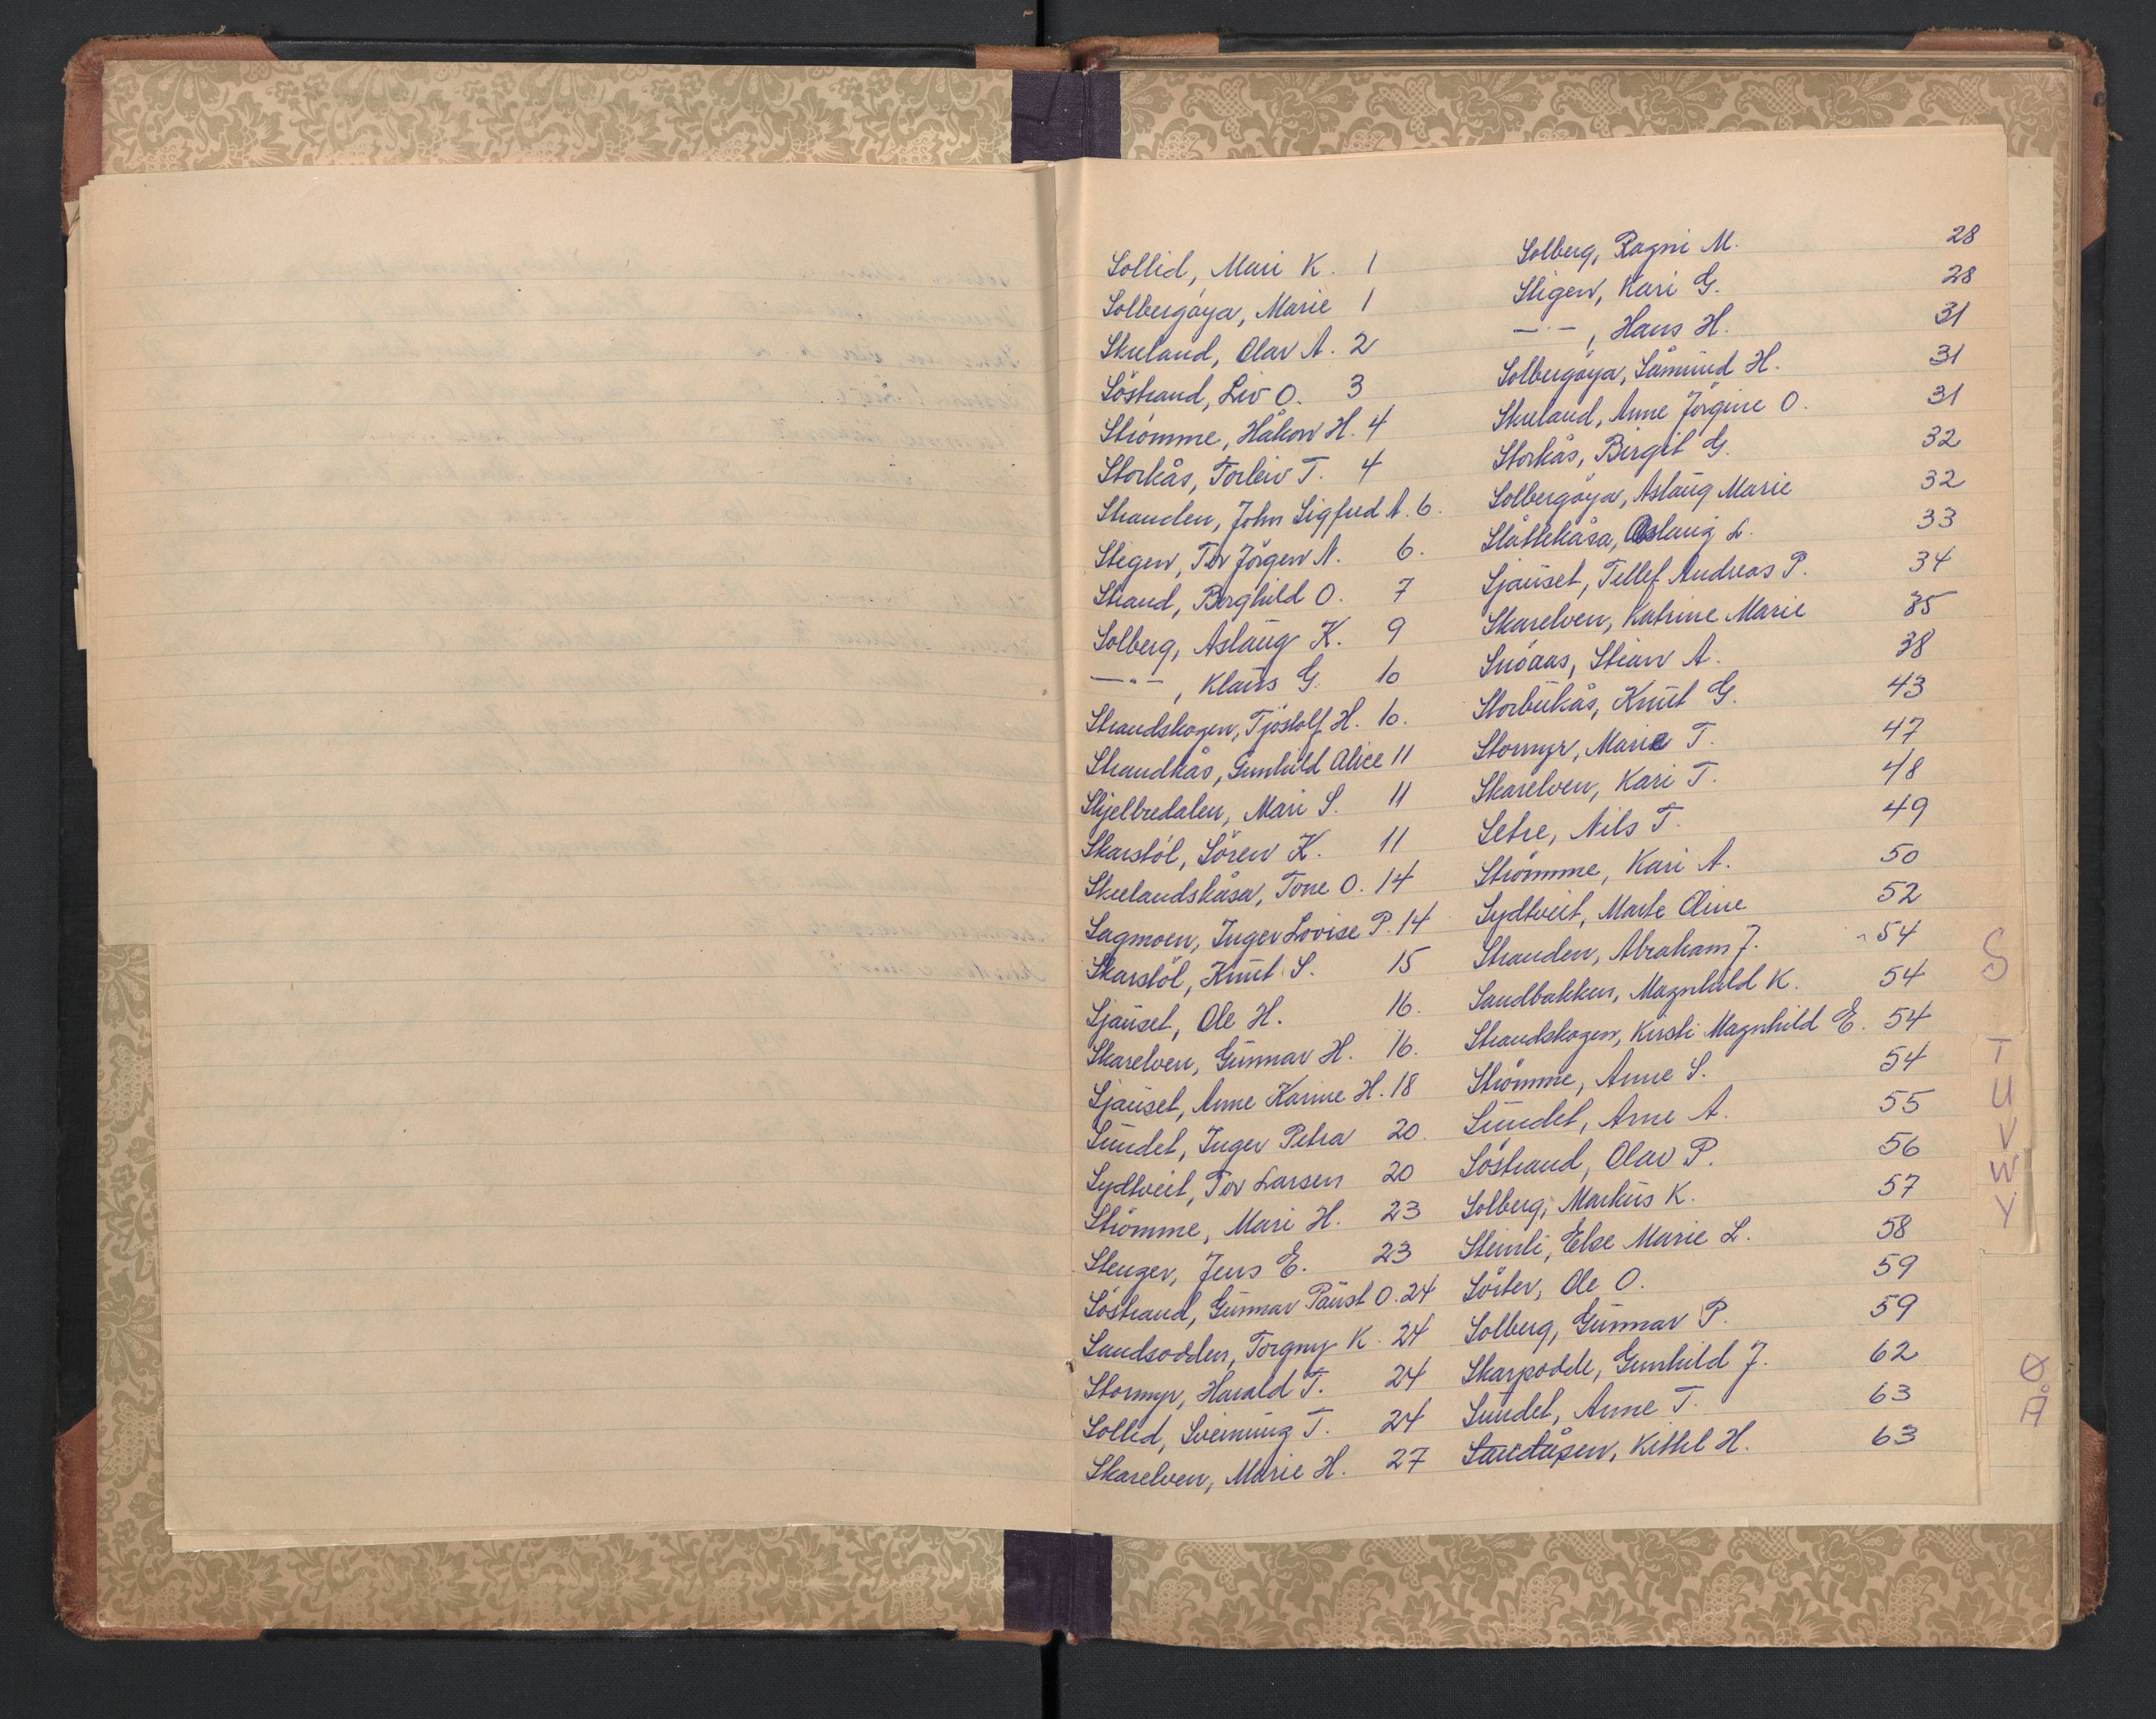 Sollid, Mari K. 1
Solbergöya, Marie 1
Skuland, Olav A. 2
Söstrand, Liv O. 3
Strömme, Håkon H. 4
Storkås, Torleiv T. 4
Stranden, John Sigfred A. 6.
Stigen, Tov Jörgen N. 6.
Strand, Borghild O. 7
Solberg, Aslaug K. 9
—"—, Klaus G. 10
Strandskogen, Tjöstolf H. 10.
Strandkås, Gunhild Alice 11
Skjelbredalen, Mari S. 11
Skarstöl, Sören K. 11
Skulandskåsa, Tone O. 14
Sagmoen, Inger Lovise P. 14
Skarstöl, Knut S. 15
Sjauset, Ole H. 16.
Skarelven, Gunnar H. 16.
Sjauset, Anne Karine H. 18
Sundet, Inger Petra 20.
Sydtveit, Tov Larsen 20
Strömme, Mari H. 23
Stenger, Jens E. 23
Söstrand, Gunnar Paust O. 24
Sandsodden, Torgny K. 24
Stormyr, Harald T. 24
Sollid, Sveinung T. 24
Skarelven, Marie H. 27
Solberg, Ragni M. 28
Stigen, Kari G. 28
—"—, Hans H. 31
Solbergöya, Såmund H. 31
Skuland, Anne Jörgine O. 31
Storkås, Birgit G. 32
Solbergöya, Aslaug Marie 32
Slåttekåsa, Aslaug L. 33
Sjauset, Tellef Andreas P. 34
Skarelven, Katrine Marie 35
Snöaas, Stian A. 38
Storbukås, Knut G. 43
Stormyr, Marie T. 47
Skarelven, Kari T. 48
Setre, Nils T. 49
Strömme, Kari A. 50
Sydtveit, Marte Oline 52
Stranden, Abraham J. 54
Sandbakken, Magnhild K. 54
Strandskogen, Kirsti Magnhild E. 54
Strömme, Anne S. 54
Sundet, Arne A. 55
Söstrand, Olav P. 56
Solberg, Markus K. 57
Steinli, Else Marie L. 58
Söiter, Ole O. 59
Solberg, Gunnar P. 59
Skarpodde, Gunhild J. 62
Sundet, Anne T. 63
Sandåsen, Kittil H. 63
S
T
U
V
W
Y
Ø
Å